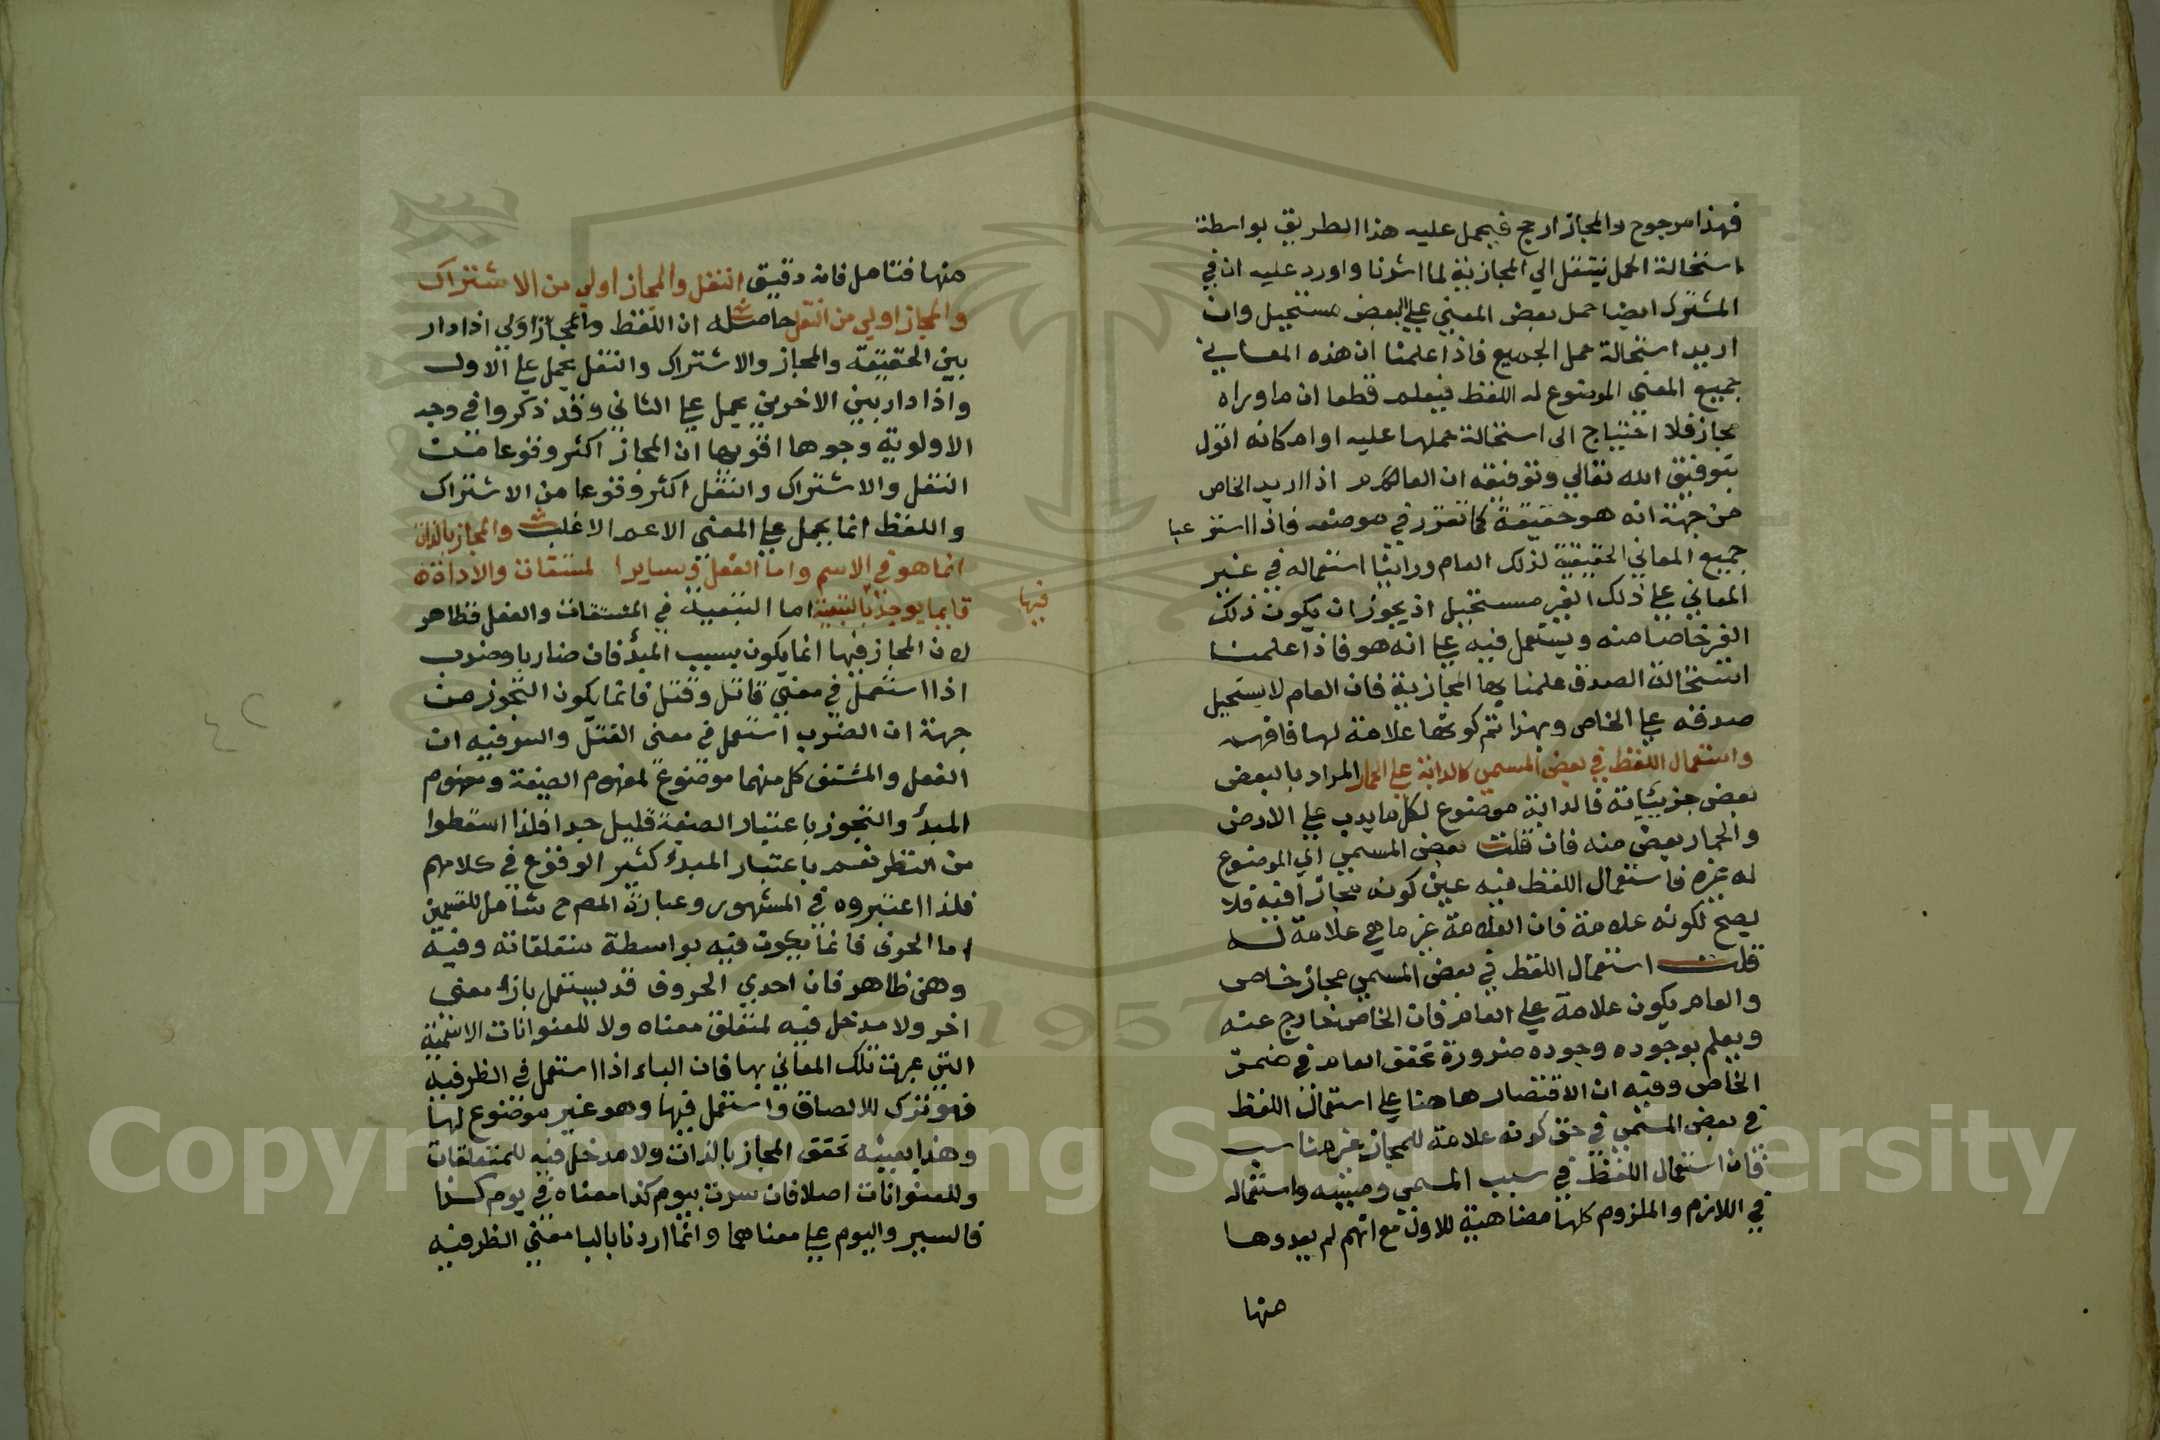 فهذا مرجوح والمجاز ارجح فيحمل عليه هذا الطريق بواسطة
استحالة الحمل ينتقل الى المجازية لما اشرنا واورد عليه ان في
المشترك ايضا حمل بعض المعنى على البعض مستحيل وان
اريد استحالة حمل الجميع فاذا علمنا ان هذه المعاني
جميع المعنى الموضوع له اللفظ فيعلم قطعا ان ما وراه
مجاز فلا احتياج الى استحالة حملها عليه او امكانه اقول
بتوفيق الله تعالى وتوفيقه ان العام اذا اريد الخاص
من جهة انه هو حقيقة كما تقرر في موضعه فاذا
جميع المعاني الحقيقية لذلك العام وراينا استعماله في غير
المعاني على ذلك الغير مستحيل اذ يجوز ان يكون ذلك
الغير خاصا منه ويستعمل فيه على انه هو فاذا علمنا
استحالة الصدق علمنا بها المجازية فان العام لا يستحيل
صدقه على الخاص وبهذا تم كونها علامة لها فافهم
واستعمال اللفظ في بعض المسمى كالدابة على الحمار المراد بالبعض
بعض جزئياته فالدابة موضوع لكل ما يدب على الارض
والحمار بعض منه فان قلت بعض المسمى اي الموضوع
له غيره فاستعمال اللفظ فيه عين كونه مجازا فيه فلا
يصح لكونه علامة فان العلامة غير ما هي علامة له
قلت استعمال اللفظ في بعض المسمى مجاز خاص
والعام يكون علامة على العام فان الخاص خارج عنه
ويعلم بوجوده وجوده ضرورة تحقق العام في ضمن
الخاص وفيه ان الاقتصار ها هنا على استعمال اللفظ
في بعض المسمى في حق كونه علامة للمجاز غير مناسب
فان استعمال اللفظ في سبب المسمى ومسببه واستعماله
في اللازم والملزوم كلها مضاهية للاول مع انهم لم يعدوها
منها
منها فتامل فانه دقيق النقل والمجاز اولى من الاشتراك
والمجاز اولى من النقل ش حاصله ان اللفظ والمجاز اولى اذا دار
بين الحقيقة والمجاز والاشتراك والنقل يحمل على الاول
واذا دار بين الاخرين يحمل على الثاني وقد ذكروا في وجه
الاولوية وجوها اقويها ان المجاز اكثر وقوعا من
النقل والاشتراك والنقل اكثر وقوعا من الاشتراك
واللفظ انما يحمل على المعنى الاعم الاغلب والمجاز بالذات
انما هو في الاسم واما الفعل وساير المشتقات والاداة
فيها
فانما يوجد بالتبعية اما التبعية في المشتقات والفعل فظاهر
لان المجاز فيها انما يكون بسبب المبدأ فان ضاربا وضرب
اذا استعمل في معنى قاتل وقتل فانما يكون التجوز من
جهة ان الضرب استعمل في معنى القتل والسر فيه ان
الفعل والمشتق كل منهما موضوع لمفهوم الصيغة ومفهوم
المبدأ والتجوز باعتبار الصيغة قليل جدا فلذا اسقطوا
من النظر نعم باعتبار المبدء كثير الوقوع في كلامهم
فلذا اعتبروه في المشهور وعبارة المص ح شامل للقسمين
اما الحرف فانما يكون فيه بواسطة متعلقاته وفيه
وهن ظاهر فان احدى الحروف قد يستعمل بازاء معنى
اخر ولا مدخل فيه لمتعلق معناه ولا للعنوانات الاسمية
التي عبرت تلك المعاني بها فان الباء اذا استعمل في الظرفية
فهو ترك للالصاق واستعمل فيها وهو غير موضوع لها
وهذا بعينه تحقق المجاز بالذات ولا مدخل فيه للمتعلقات
وللعنوانات اصلا فان سرت بيوم كذا معناه في يوم كذا
فالسير واليوم على معناهما وانما اردنا بالبا معنى الظرفية
٤٢
Copyright © King Saud University
1957